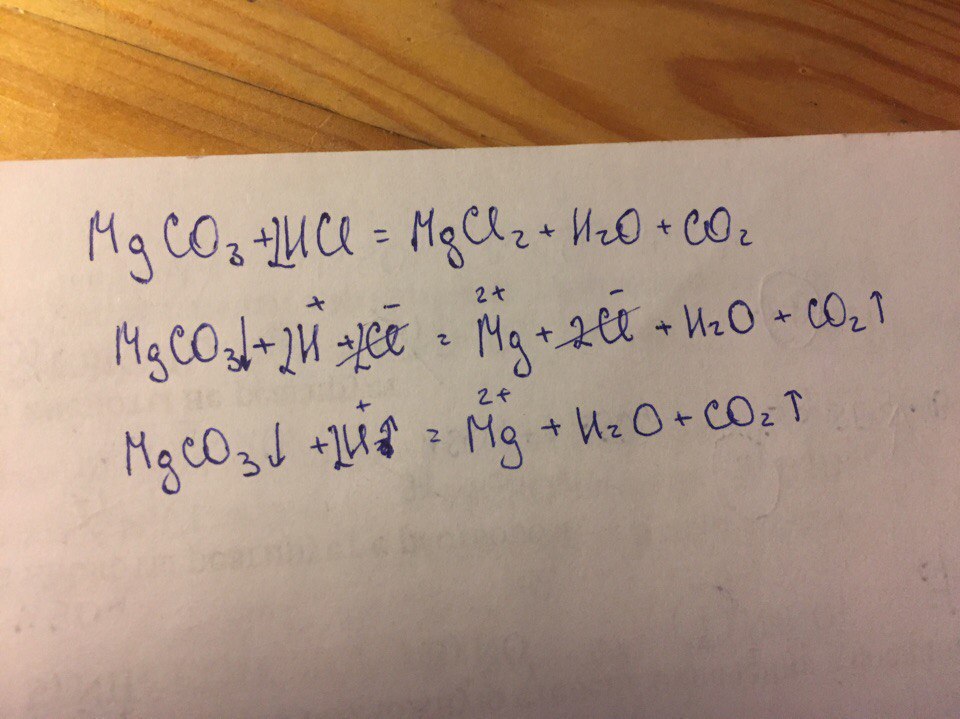 MgCO₃ + 2HCl = MgCl₂ + H₂O + CO₂
MgCO₃↓ + 2H⁺ + 2Cl⁻ = Mg²⁺ + 2Cl⁻ + H₂O + CO₂↑
MgCO₃↓ + 2H⁺ = Mg²⁺ + H₂O + CO₂↑